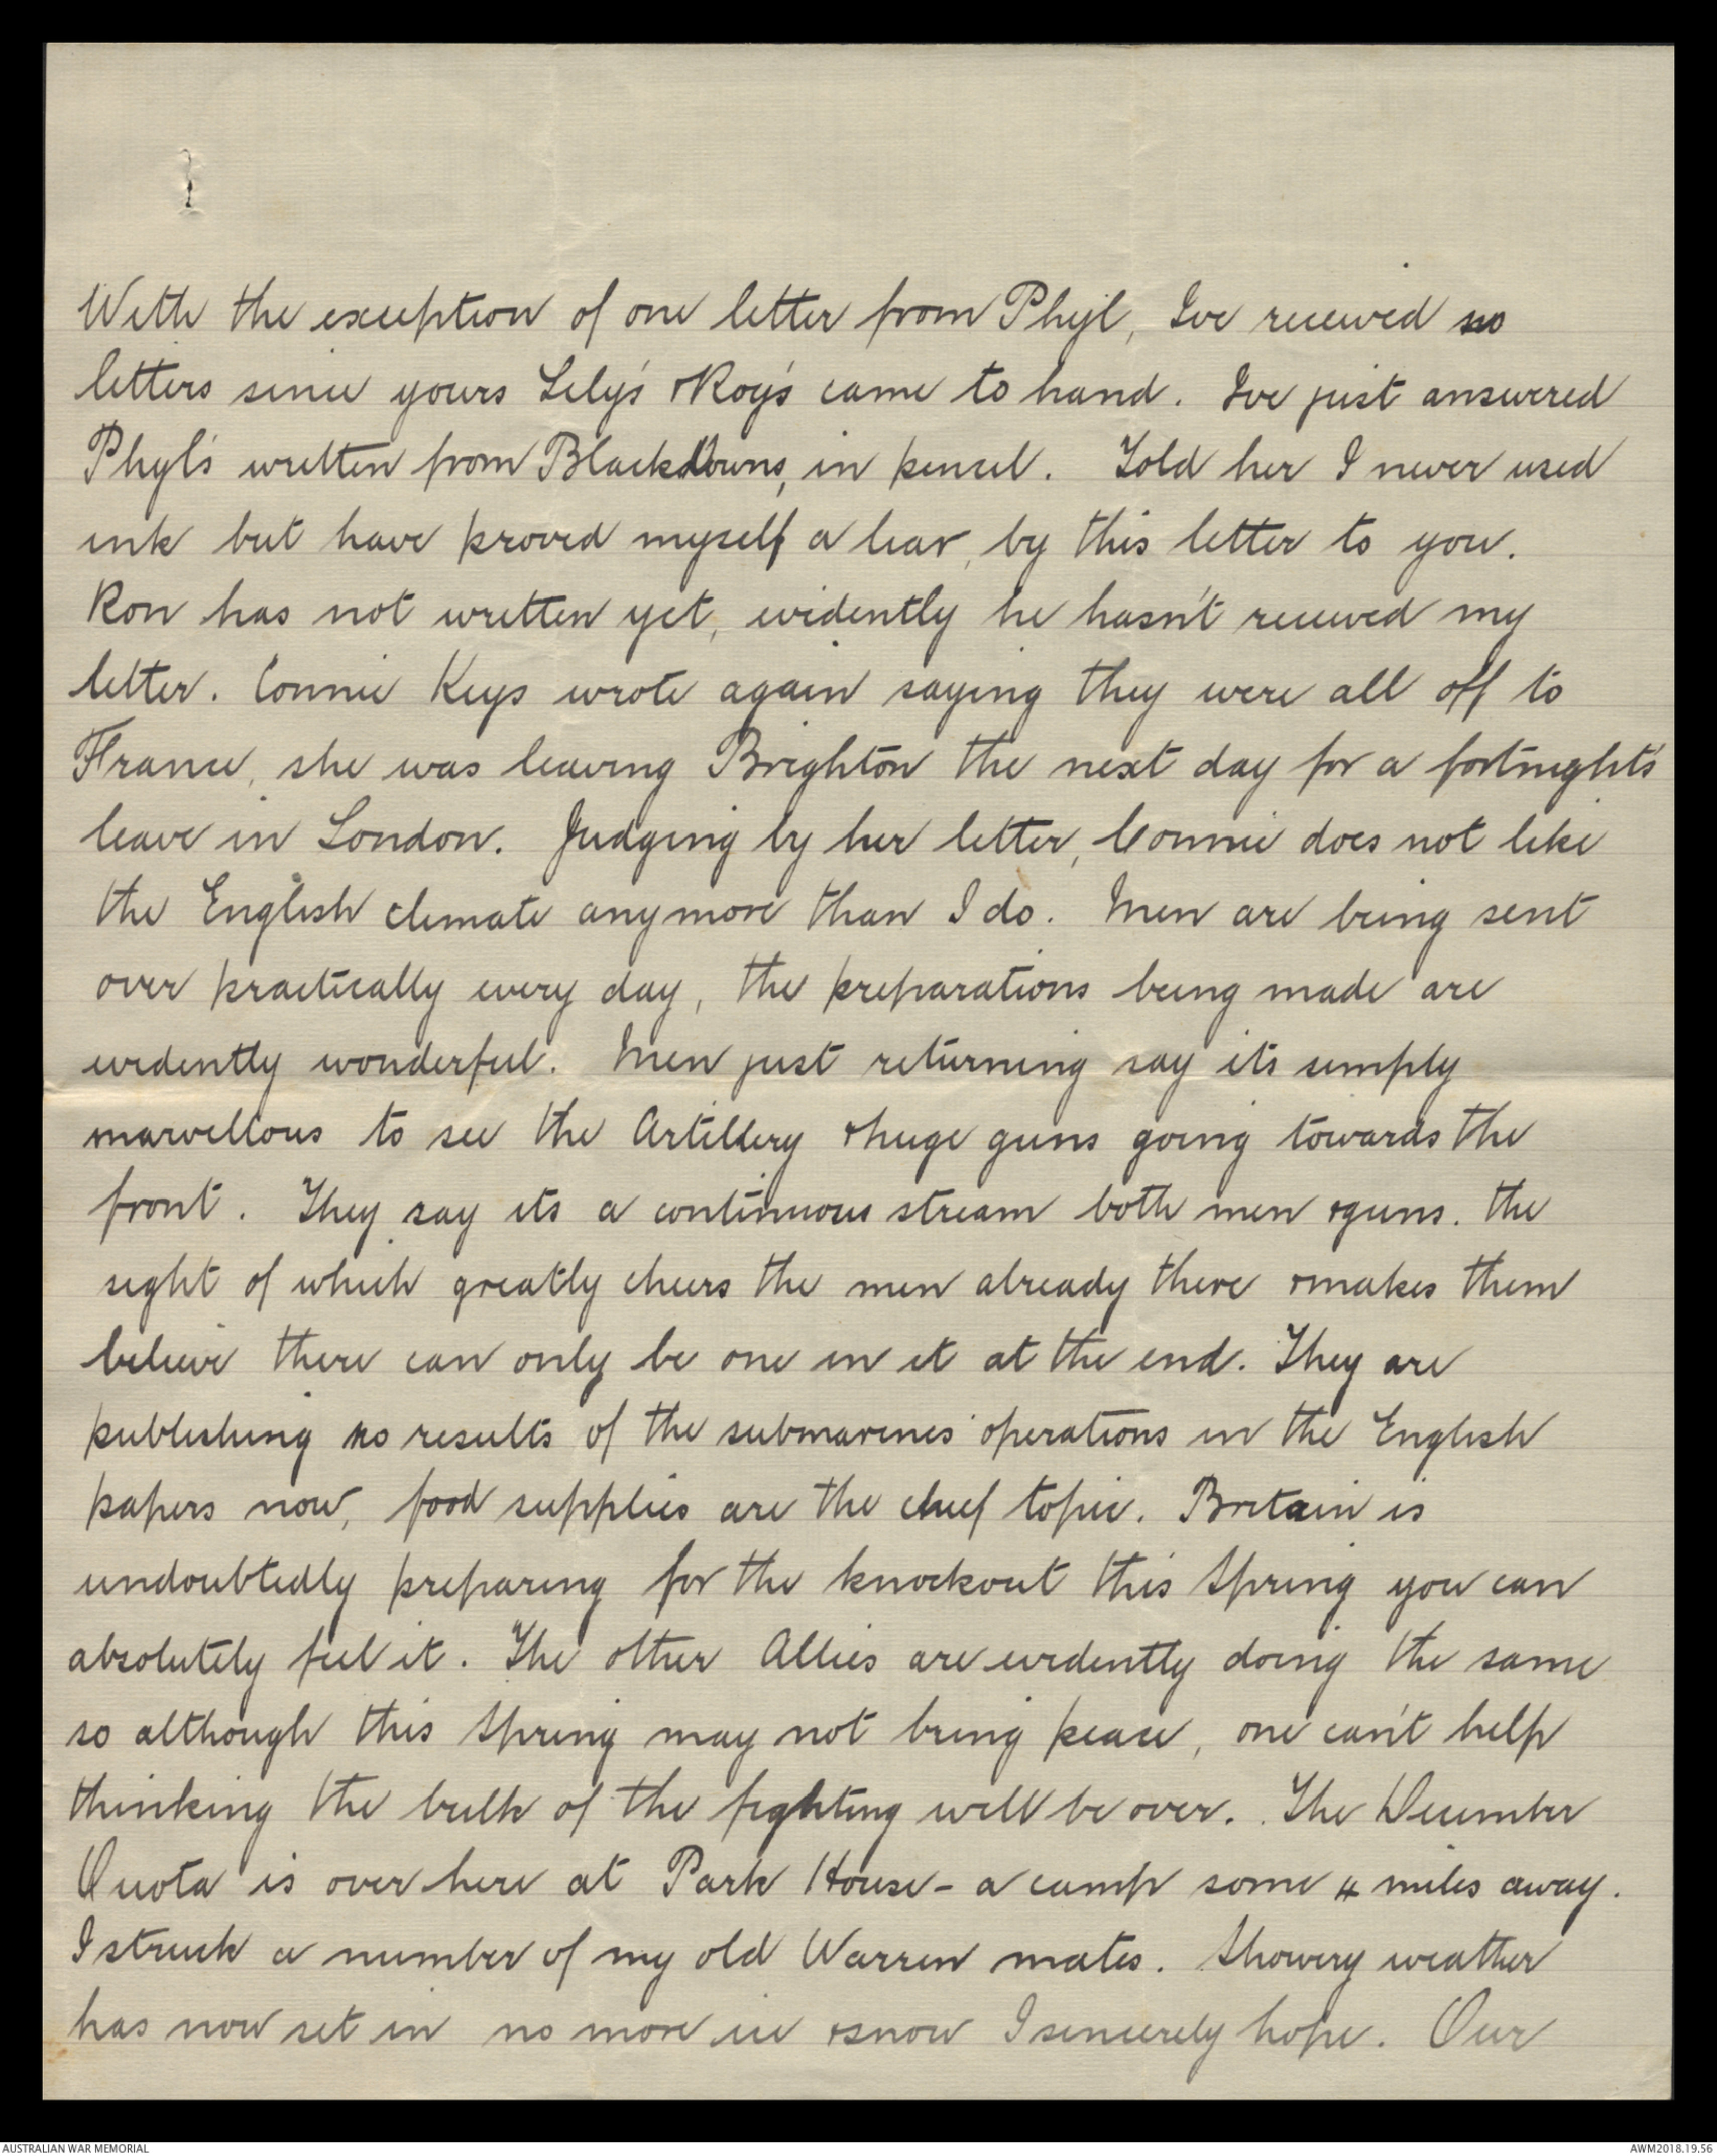 With the exception of one letter from Phyl, Ive received no
letters since yours Lily's & Roy's came to hand. Ive just answered
Phyl's written from Blackdowns, in pencil. Told her I never used
ink but have proved myself a liar, by this letter to you.
Ron has not written yet, evidently he hasn't received my
letter. Connie Keys wrote again saying they were all off to
France, she was leaving Brighton the next day for a fortnight's
leave in London. Judging by her letter, Connie does not like
the English climate anymore than I do. Men are being sent
over practically every day, the preparations being made are
evidently wonderful. Men just returning say its simply
marvellous to see the Artillery & huge guns going towards the
front. They say its a continuous stream both men & guns. the
sight of which greatly cheers the men already there & makes them
believe there can only be one in it at the end. They are
publishing no results of the submarines' operations in the English
papers now, food supplies are the chief topic. Britain is
undoubtedly preparing for the knockout this Spring you can
absolutely feel it. The other Allies are evidently doing the same
so although this Spring may not bring peace, one can't help
thinking the bulk of the fighting will be over. The December
Quota is over here at Park House - a camp some 4 miles away.
I struck a number of my old Warren mates. Showery weather
has now set in no more ice & snow I sincerely hope. Our
AUSTRALIAN WAR MEMORIAL
AWM2018.19.56